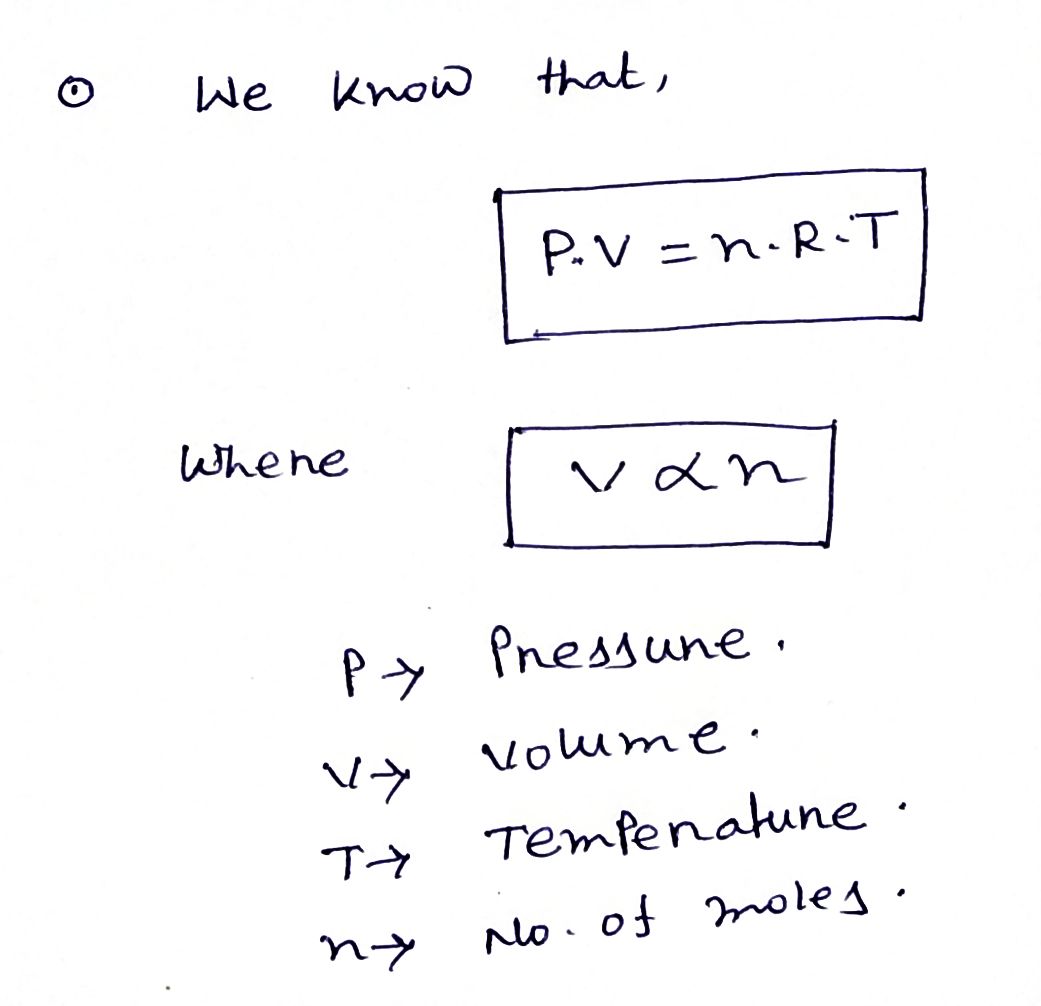 ⊙ We know that,
P.V = n.R.T
Where
V ∝ n
P → Pressure.
V → Volume.
T → Temperature.
n → No. of moles.